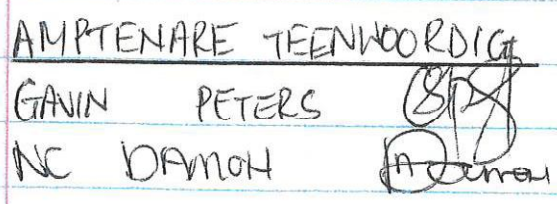 AMPTENARE TEENWOORDIG
GAVIN PETERS
NC DAMON